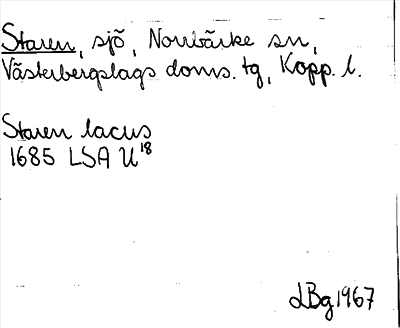 Staren, sjö, Norrbärke sn,
Västerbergslags doms. tg, Kopp. l.
Staren lacus
1685 LSA U18
LBg 1967